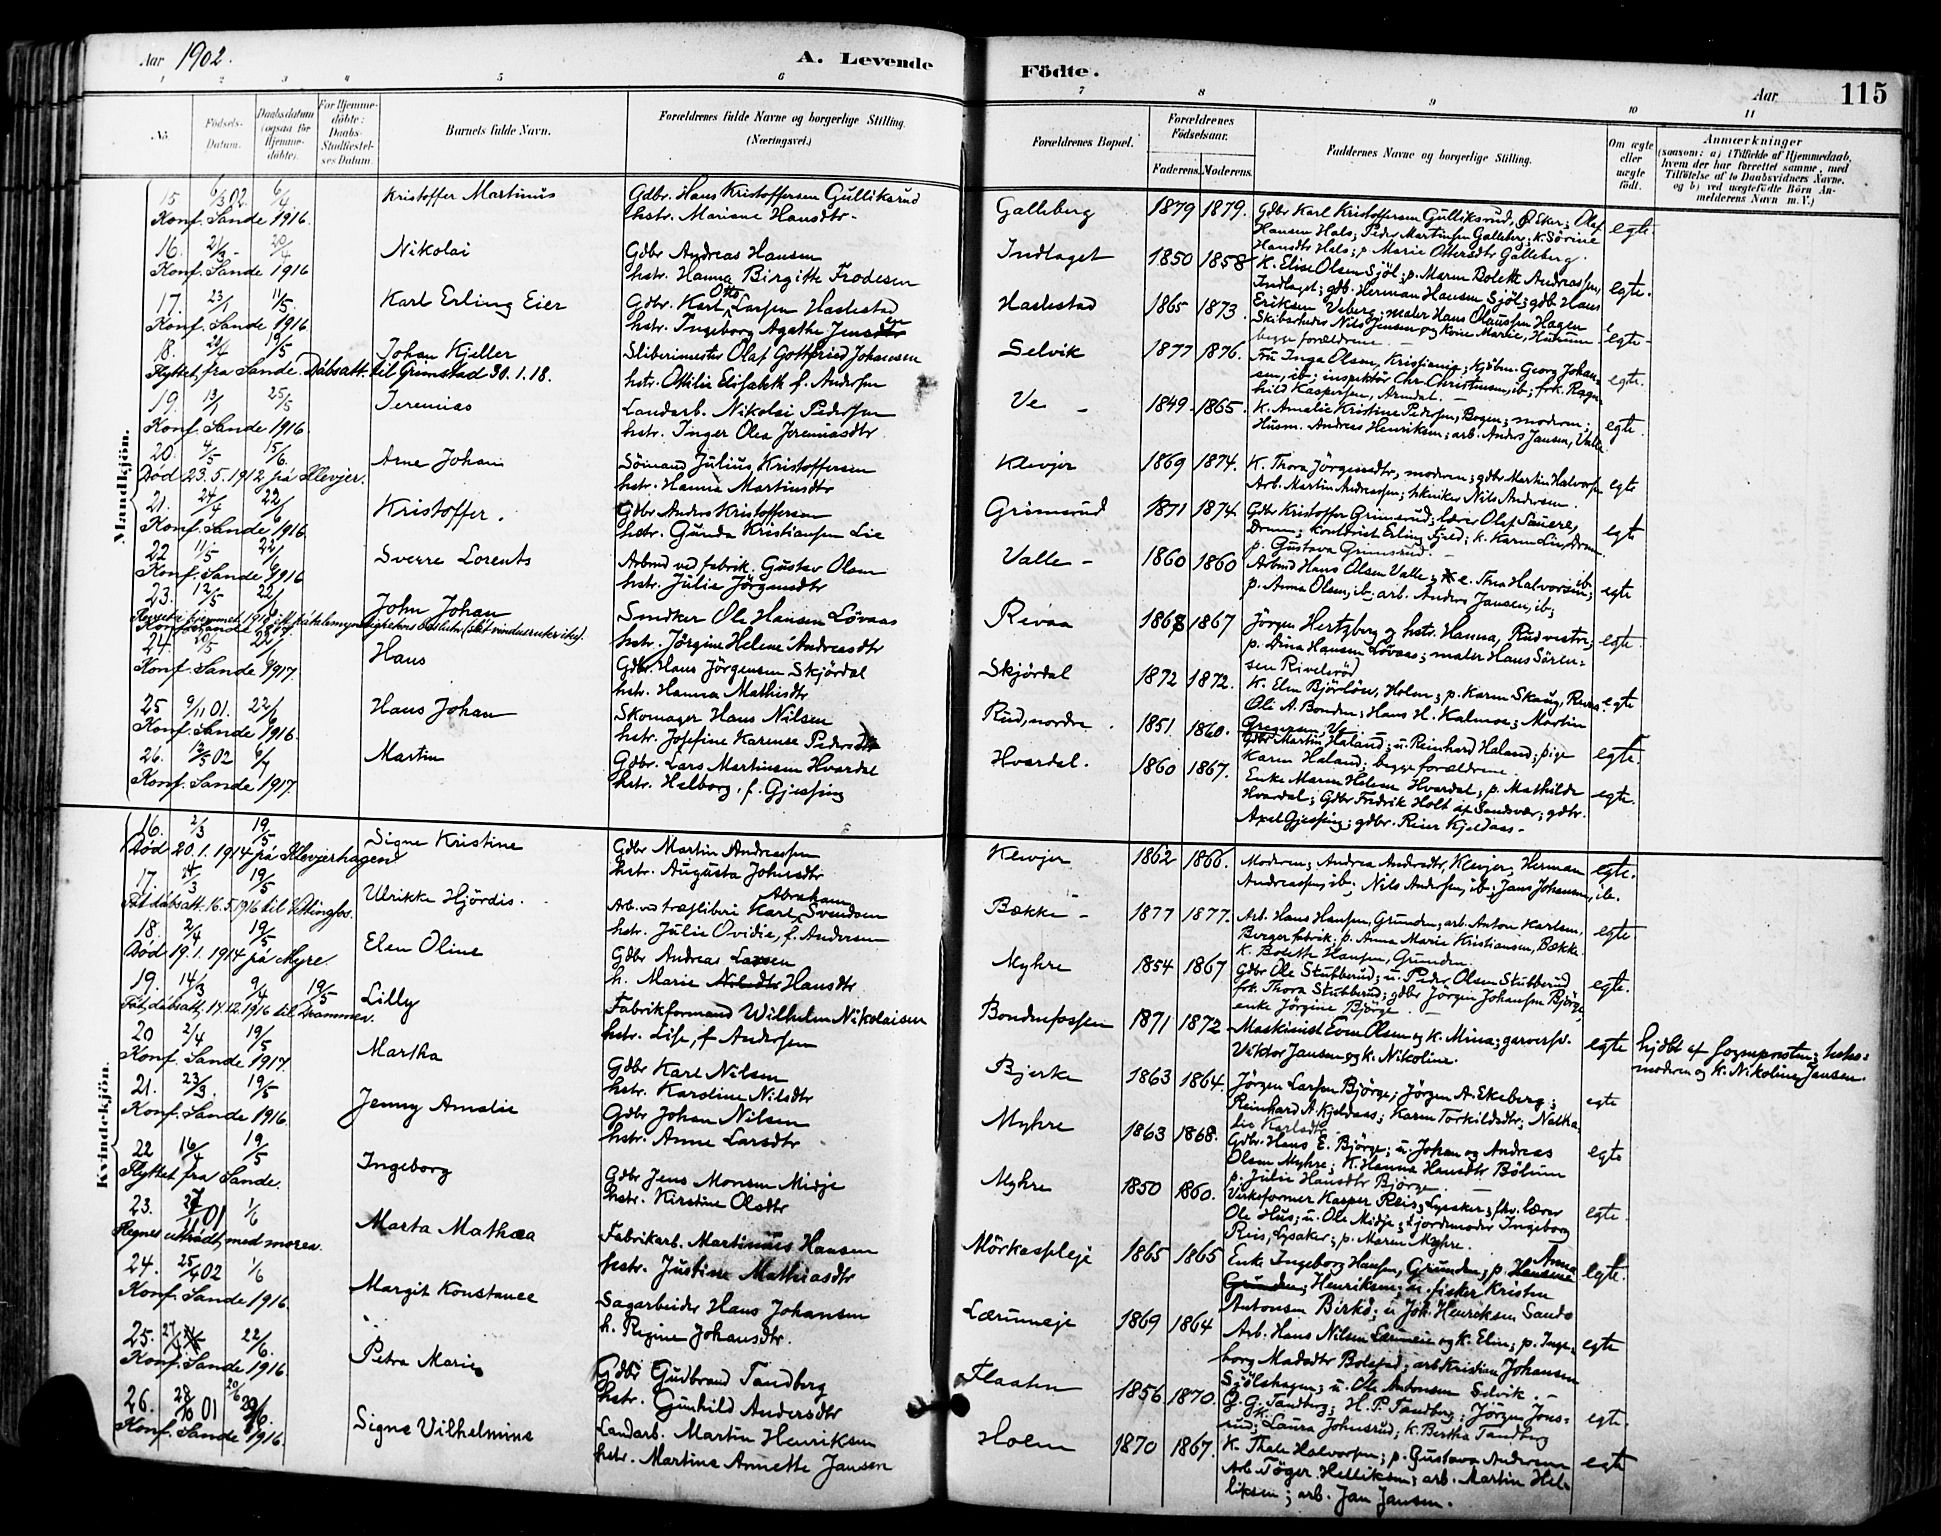 Aar 1902.
A. Levende
Födte.
Aar
115
1 2 3 4 5 6 7 8 9 10 11
No.
Födsels-Datum.
Daabsdatum (ogsaa for Hjemmedöbte).
For Hjemmedöbte: Daabs-Stadfæstelses Datum.
Barnets fulde Navn.
Forældrenes fulde Navne og borgerlige Stilling. (Næringsvei.)
Forældrenes Bopæl.
Forældrenes Födselsaar.
Faderens. Moderens.
Faddernes Navne og borgerlige Stilling.
Om ægte eller uægte födt.
Anmærkninger
(saasom: a) i Tilfælde af Hjemmedaab, hvem der har forrettet samme, med Tilföielse af to Daabsvidners Navne, og b) ved uægtefödte Börn Anmelderens Navn m. V.)
Mandkjön.
15 6/3 02. 6/4 Kristoffer Martinius Gdbr. Hans Kristoffersen Gulliksrud
hstr. Mariane Hansdtr. Galleberg 1879 1879. Gdbr Karl Kristoffersen Gulliksrud, Ø Eker; Olaf
Hansen Hals; Peder Martinsen Galleberg; k. Sörine
Hansdtr Hals; p. Marie Ottersdtr Galleberg. egte.
Konf. Sande 1916.
16. 20/4 Nikolai Gdbr Andreas Hansen
hstr. Hanna Birgitte Frodesen Indlaget 1850 1858 K. Elise Olsen Sjöl; p. Maren Bolette Andreassen,
Indlaget; gdb. Herman Hansen Sjöl; gdb Hans
Eriksen Veberg; maler Hans Olaussen Hagen egte.
Konf. Sande 1916
17. 23/1 11/5. Karl Erling Eier Gdbr. Karl Otto Larssen Haslestad
hstr. Ingeborg Agathe Jensen Haslestad 1865 1873 Skibsreder Nils Jensen og Kone Marie, Hurum
begge forældrene. egte
Konf. Sande 1916
18. 19/5 Johan Kjeller Sliberimester Olaf Gottfried Johansen
hstr. Ottilie Elisabeth f. Andersen Selvik 1877 1876. Frk Inga Olsen, Kristiania; kjöbm. Georg Johansen,
ib; inspektör Chr. Christensen, ib; frk. Ragnhild
Kaspersen, Arendal. egte.
Flyttet fra Sande. Dåbsatt. til Grimstad 30.1.18.
19. 13/1 25/5 Jeremias Landarb. Nikolai Pedersen
hstr. Inger Olea Jeremiasdtr Ve 1849 1865. K. Amalie Kristine Pedersen, Bogen; moderen;
Husm. Andreas Henriksen; arb. Anders Jansen, Valle egte.
Konf. Sande 1916.
20. 4/5 15/6. Arne Johan Sömand Julius Kristoffersen
hstr. Hanna Martinsdtr Klevjer 1869 1874. K. Thora Jörginsdtr, moderen; gdbr Martin Halvorsen
Arb. Martin Andreassen; tekniker Nils Andersen. egte
Död 23.5.1912 på Klevjer.
21. 24/4 22/6 Kristoffer. Gdbr Anders Kristoffersen
hstr. Gunda Kristiansen Lie Grimsrud 1871 1874. Gdbr Kristoffer Grimsrud; lærer Olaf Sauere,
Dram; kontorist Erling Fjeld; k. Karen Lie, Dram.
p. Gustava Grimsrud. egte
Konf. Sande 1916.
22 11/5 22/6 Sverre Lorents Arbmd ved fabrik. Gustav Olsen
hstr. Julie Jörgensdtr Valle 1860 1860 Arbmd Hans Olsen Valle; e. Thea Halvorsen, ib;
p. Anna Olsen, ib; arb. Anders Jansen, ib; egte
Konf. Sande 1916
23. 12/5 22/6 John Johan Snedker Ole Hansen Lövaas
hstr. Jörgine Helene Andreasdtr Revaa 1868 1867 Jörgen Hertzberg og hstr. Hanna, Rud vestre;
p. Dina Hansen Lövaas; maler Hans Sörensen
Riveleröd egte.
24. 20/5 22/6 Hans Gdbr. Hans Jörgensen Skjördal
hstr. Hanna Mathisdtr Skjördal 1872 1872. K. Elen Björlöw, Holm; p. Karen Skaug, Revaa
Oli A. Bonden; Hans H. Kalmoe; Martin
Gregersen, Ve egte
Konf. Sande 1917.
25 9/11 01. 22/6 Hans Johan Skomager Hans Nilsen
hstr. Josefine Karense Pedersdtr Rud, nordre. 1851 1860. Gdbr Martin Haland; u. Reinhard Haland; pige
Karen Haland; begge forældrene. egte.
Konf. Sande 1916.
26. 13/5 02 6/7 Martin Gdbr. Lars Martinsen Hvardal
hstr. Helborg, f. Gjessing Hvardal. 1860 1867. Enke Maren Helene Hvardal; p. Mathilde
Hvardal; Gdbr Fredrik Holt af Sandsvær; gdbr.
Axel Gjessing; gdbr. Reier Kjeldaas. egte.
Konf. Sande 1917.
Kvindekjön.
16. 2/3 19/5 Signe Kristine Gdbr Martin Andreassen
hstr. Augusta Johnsdtr Klevjer 1862 1866. Moderen; Andrea Andersdtr, Klevjer; Herman
Andreassen, ib; Nils Andersen, ib; Jans Johansen, ib. egte.
Död 20.1.1914 på Klevjerhagen
17. 19/5 Ulrikke Hjördis. Arb. ved træsliberi Karl Abraham Svendsen
hstr. Julie Ovidie, f. Andersen Bække 1877 1877. Arb. Hans Hansen, Grunden; arb. Anton Karlsen,
Berger fabrik; p. Anna Marie Kristiansen, Bække
k. Bolette Hansen, Grunden. egte.
18. 2/4 19/5 Elen Oline Gdbr Andreas Larsen
h. Marie Hansdtr Myhre 1854 1867 Gdbr Ole Stubberud; u. Peder Olsen Stubberud
frk. Thora Stubberud; gdbr Jörgen Johansen Björge,
enke Jörgine Björge. egte.
Död 19.1.1914 på Myre.
19. 14/3 9/4 19/5 Lilly Fabrikformand Wilhelm Nikolaisen
hstr. Lise, f Andersen Bondenfossen 1871 1872 Maskinist Even Olsen og k. Mina; garversv.
Viktor Jansen og k. Nikoline. egte hjdbt af sognepresten;
moderen og k. Nikoline Jansen.
Fåt dåbsatt. 14.12.1916 til Drammen.
20 2/4 19/5 Martha Gdbr Karl Nilsen
hstr. Karoline Nilsdtr Bjerke 1863 1864. Jörgen Larsen Björge; Jörgen A. Ekeberg;
Reinhard A. Kjeldaas; Karen Torkildsdtr; Nathalie
Karlsdtr egte
Konf. Sande 1917.
21. 23/3. 19/5 Jenny Amalie Gdbr Johan Nilsen
hstr. Anne Larsdtr Myhre 1863 1868. Gdbr. Hans E. Björge; u. Johan og Andreas
Olsen Myhre; K. Hanna Hansdtr Bölum
p. Julie Hansdtr Björge. egte
Konf. Sande 1916.
22 16/4 19/5 Ingeborg Gdbr Jens Monsen Midje
hstr. Kirstine Olsdtr Myhre 1850 1860. Kasper Reis, Lysaker; fhv. lærer
Ole Hus; u. Ole Midje; Ingeborg
Reis, Lysaker; p. Maren Myhre. egte.
Flyttet fra Sande.
23. 01 1/6 Marta Mathæa Fabrikarb. Martinius Hansen
hstr. Justine Mathiasdtr Mörkaspleje 1865 1865 Enke Ingeborg Hansen, Grunden; p. Anna
Henriksen; u. fisker Kristen
Antonsen Birkö; u Joh. Henriksen Sando egte.
Regnes utrådt med mores.
24. 25/4 02 1/6 Margit Konstance Sagarbeider Hans Johansen
h. Regine Johansdtr. Lærumeje 1869 1864 Arb. Hans Nilsen Lærumeie og k. Elen; p. Ingeborg
Madsdtr Bolstad; arb Kristian Johansen
Sjölshagen; u. Ole Antonsen Selvik. egte
Konf. Sande 1916.
25. 22/6. Petra Marie Gdbr Gudbrand Tandberg
hstr. Gunhild Andersdtr Flaaten 1856 1870. G. G. Tandberg; H. P. Tandberg; Jörgen Jonsrud;
k. Laura Johnsrud; k. Bertha Tandberg egte.
Konf. Sande 1916.
26. 28/10 01 Signe Vilhelmine Landarb. Martin Henriksen
hstr. Martine Annette Jansen Holm 1870 1867. K. Thale Halvorsen; p. Gustava Andersen
Arb. Töger Helliksen; arb. Martin Helliksen;
arb. Jan Jansen. egte
Konf. Sande 1916.